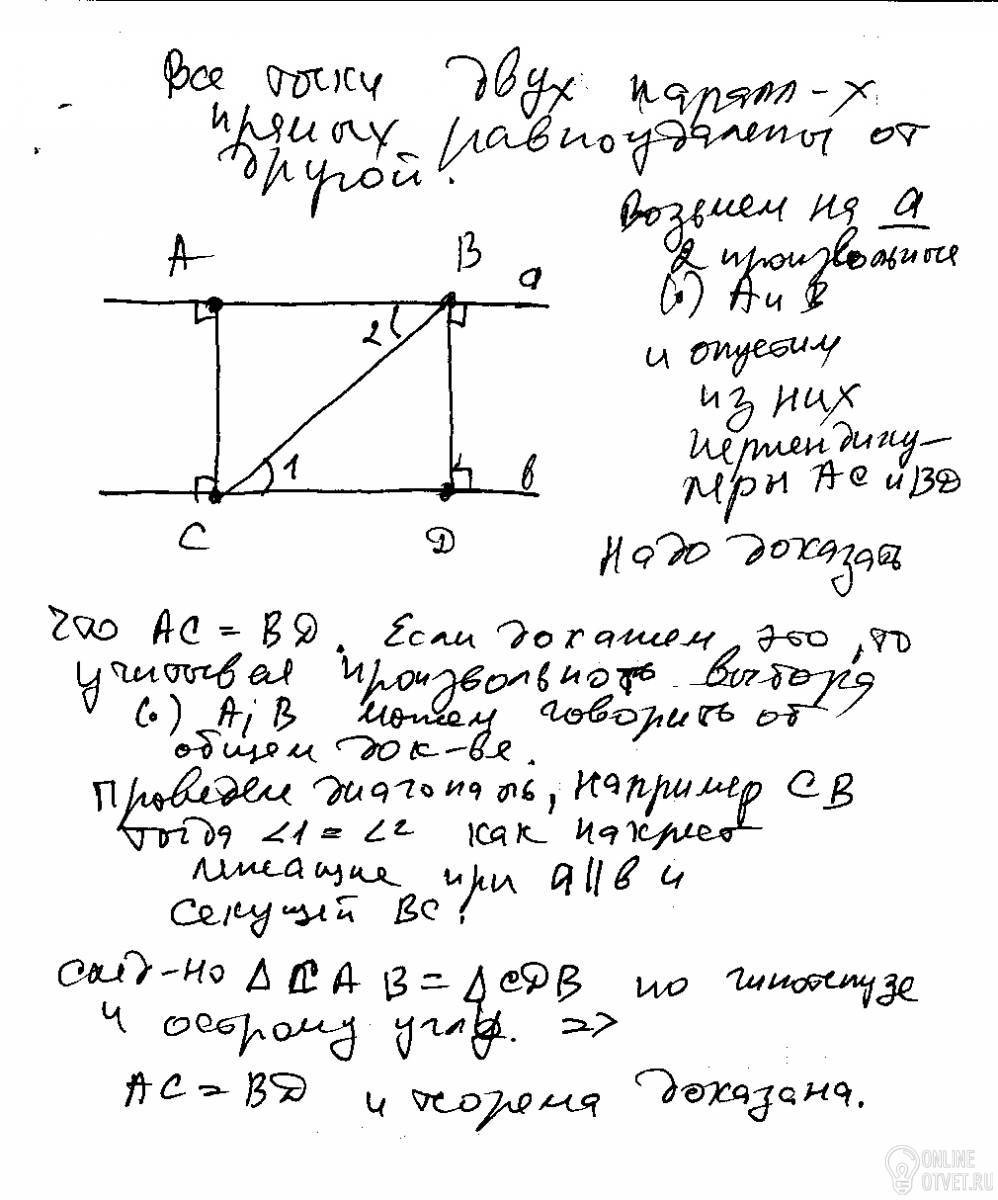 Все точки двух паралл-х
прямых равноудалены от
другой.
Возьмем на a
2 произвольные
(·) A и B
и опустим
из них
перпендику-
ляры AC и BD
Надо доказать
A
B
a
2
1
в
C
D
что AC = BD. Если докажем это, то
учитывая произвольность выбора
(·) A; B можем говорить об
общем док-ве.
Проведем диагональ, например CB
тогда ∠1 = ∠2 как накрест
лежащие при a || в и
секущей BC.
След-но Δ CAB = Δ CDB по гипотенузе
и острому углу. =>
AC = BD и теорема доказана.
ONLINE
OTVET.RU